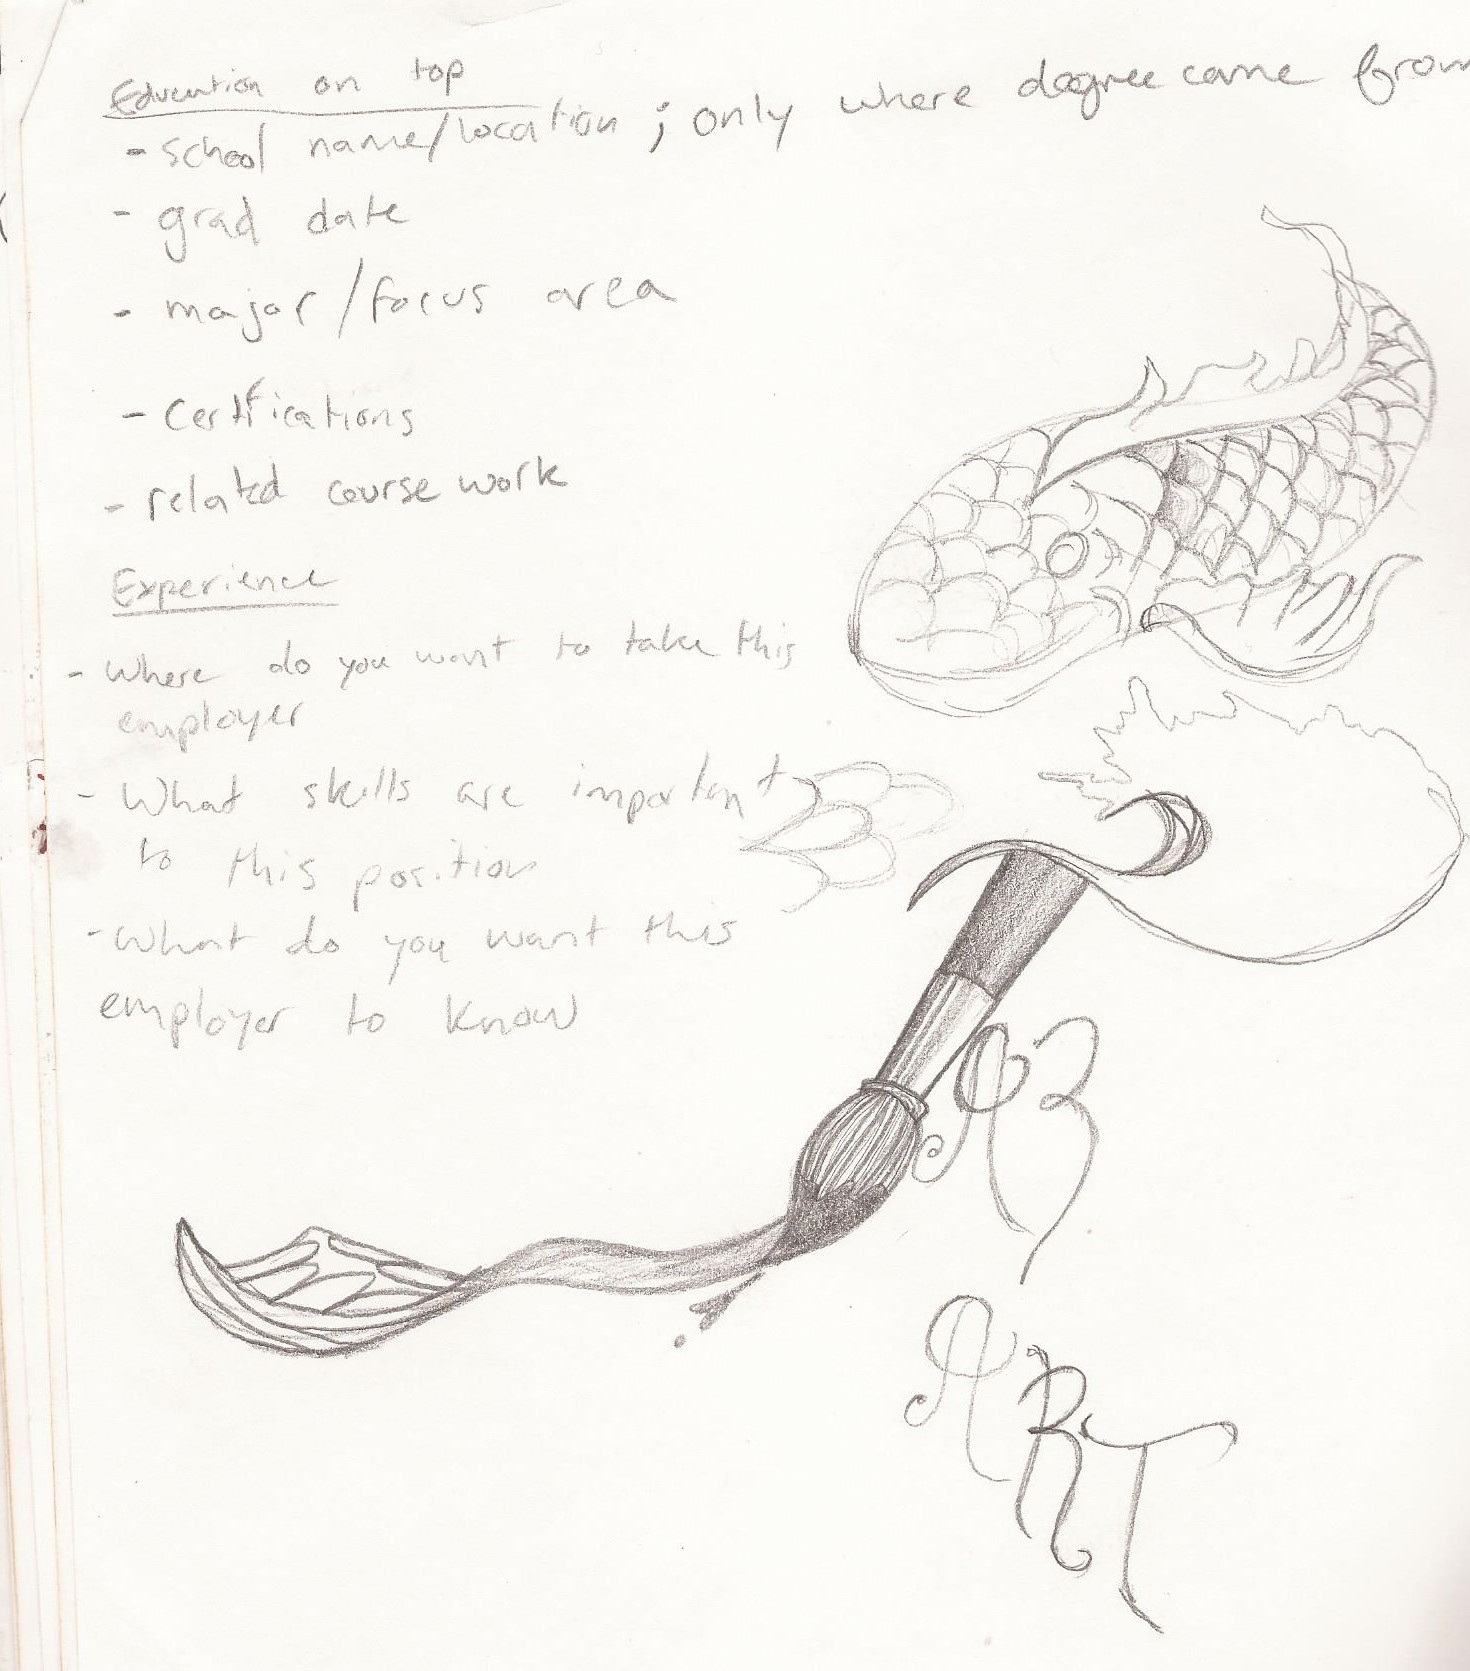 Education on top
- school name/location ; only where degree came from
- grad date
- major/focus area
- Certifications
- related course work
Experience
- Where do you want to take this
employer
- What skills are important
to this position
- What do you want this
employer to know
ART